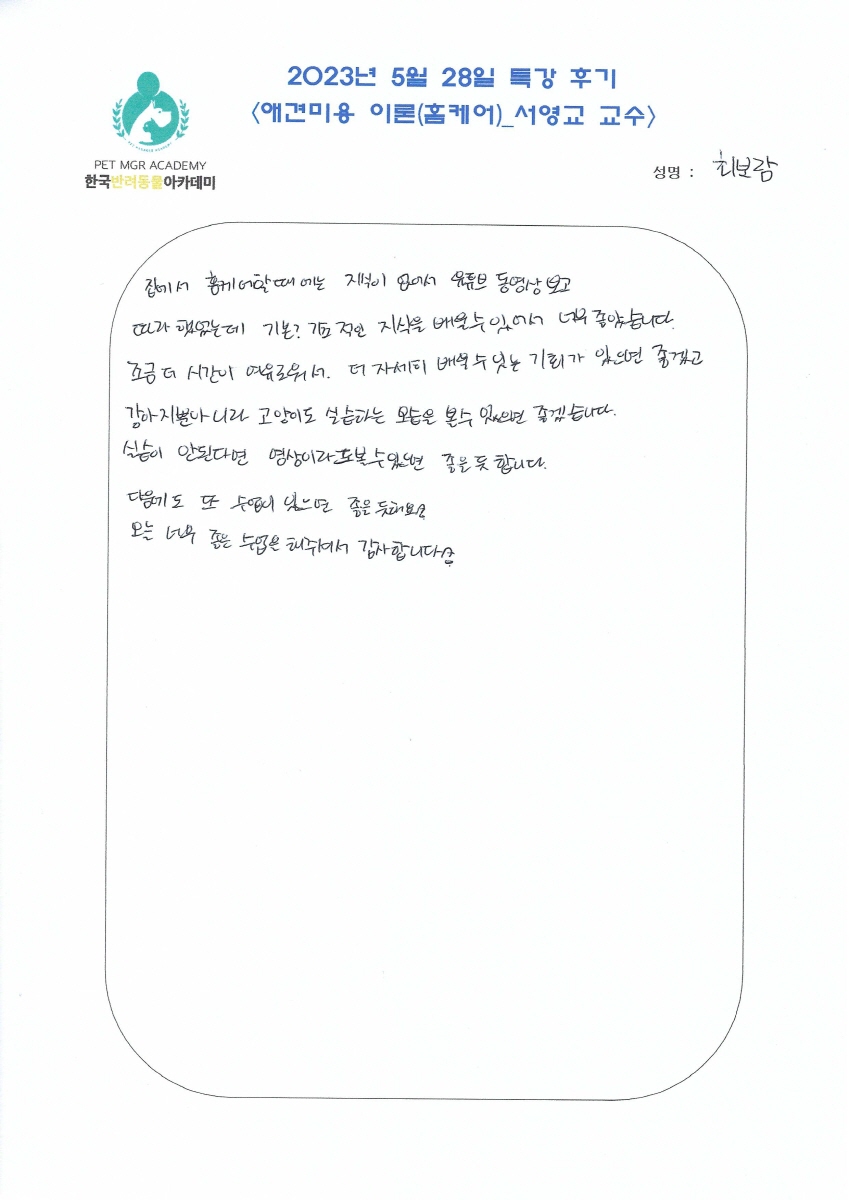 2023년 5월 28일 특강 후기
<애견미용 이론(홈케어)_서영교 교수>
PET MGR ACADEMY
한국반려동물아카데미
성명 : 최보람
집에서 홈케어할때에는 지식이 없어서 유튜브 동영상 보고
따라 했었는데 기본? 기초적인 지식을 배울수 있어서 너무 좋았습니다.
조금 더 시간이 여유로워서. 더 자세히 배울수 있는 기회가 있으면 좋겠고
강아지뿐아니라 고양이도 실습하는 모습을 볼수 있으면 좋겠습니다.
실습이 안된다면 영상이라도볼수있으면 좋을듯 합니다.
다음에도 또 수업이 있으면 좋을 듯해요
오늘 너무 좋은 수업을 해주셔서 감사합니다